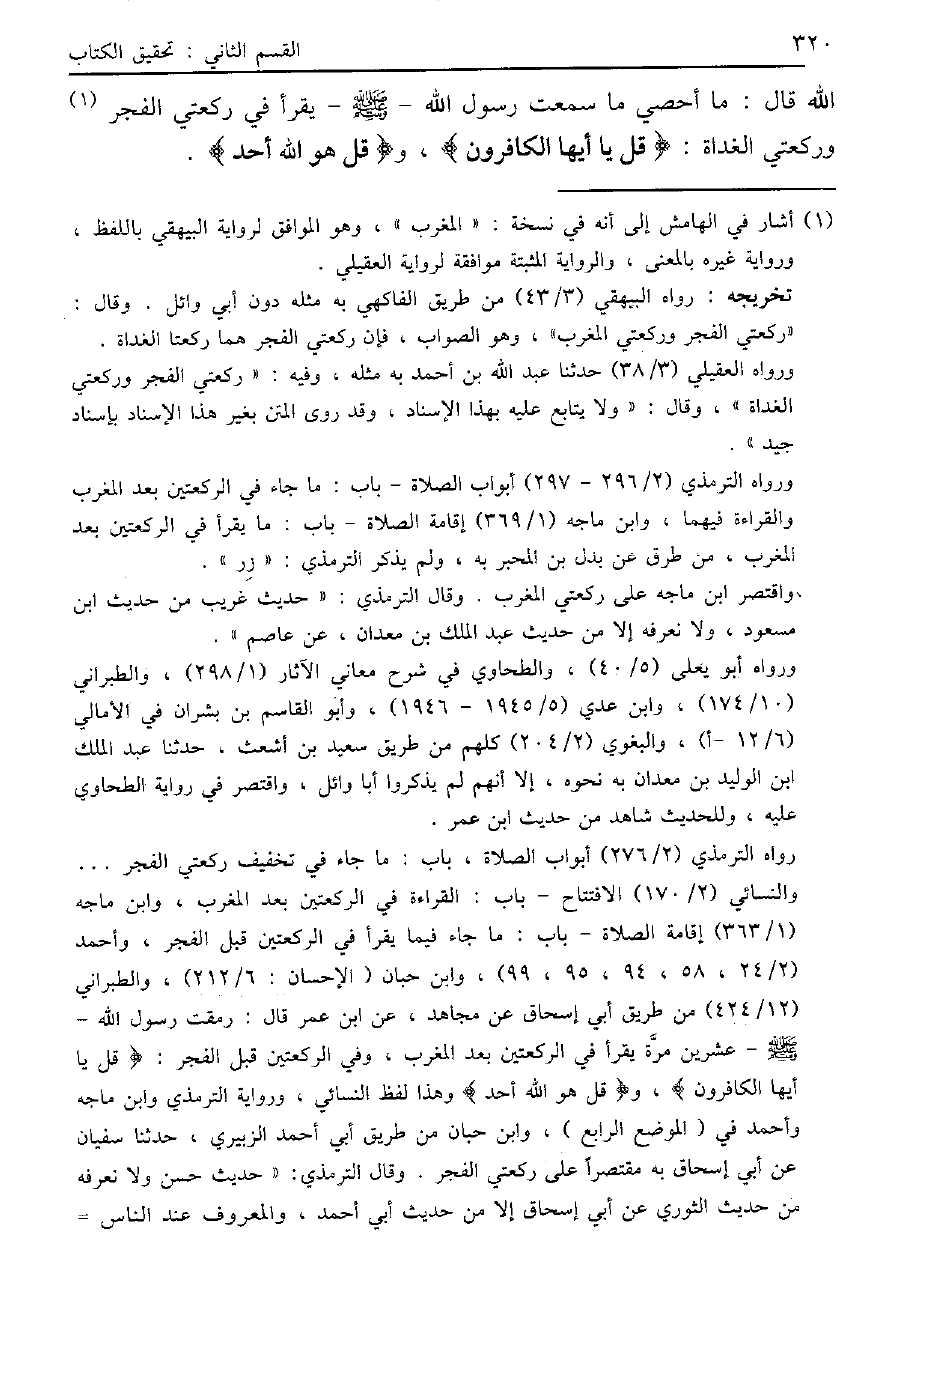 ٣٢٠ القسم الثاني : تحقيق الكتاب
الله قال : ما أحصي ما سمعت رسول الله - ﷺ - يقرأ في ركعتي الفجر (١)
وركعتي الغداة : ﴿ قل يا أيها الكافرون ﴾ ، و﴿ قل هو الله أحد ﴾ .
(١) أشار في الهامش إلى أنه في نسخة : « المغرب » ، وهو الموافق لرواية البيهقي باللفظ ،
ورواية غيره بالمعنى ، والرواية المثبتة موافقة لرواية العقيلي .
تخريجه : رواه البيهقي (٤٣/٣) من طريق الفاكهي به مثله دون أبي وائل . وقال :
«ركعتي الفجر وركعتي المغرب» ، وهو الصواب ، فإن ركعتي الفجر هما ركعتا الغداة .
ورواه العقيلي (٣٨/٣) حدثنا عبد الله بن أحمد به مثله ، وفيه : « ركعتي الفجر وركعتي
الغداة » ، وقال : « ولا يتابع عليه بهذا الإسناد ، وقد روى المتن بغير هذا الإسناد بإسناد
جيد » .
ورواه الترمذي (٢٩٦/٢ - ٢٩٧) أبواب الصلاة - باب : ما جاء في الركعتين بعد المغرب
والقراءة فيهما ، وابن ماجه (٣٦٩/١) إقامة الصلاة - باب : ما يقرأ في الركعتين بعد
المغرب ، من طرق عن بدل بن المحبر به ، ولم يذكر الترمذي : « زِر » .
واقتصر ابن ماجه على ركعتي المغرب . وقال الترمذي : « حديث غريب من حديث ابن
مسعود ، ولا نعرفه إلا من حديث عبد الملك بن معدان ، عن عاصم » .
ورواه أبو يعلى (٤٠/٥) ، والطحاوي في شرح معاني الآثار (٢٩٨/١) ، والطبراني
(١٧٤/١٠) ، وابن عدي (١٩٤٥/٥ - ١٩٤٦) ، وأبو القاسم بن بشران في الأمالي
(١٢/٦ -أ) ، والبغوي (٢٠٤/٢) كلهم من طريق سعيد بن أشعث ، حدثنا عبد الملك
ابن الوليد بن معدان به نحوه ، إلا أنهم لم يذكروا أبا وائل ، واقتصر في رواية الطحاوي
عليه ، وللحديث شاهد من حديث ابن عمر .
رواه الترمذي (٢٧٦/٢) أبواب الصلاة ، باب : ما جاء في تخفيف ركعتي الفجر ...
والنسائي (١٧٠/٢) الافتتاح - باب : القراءة في الركعتين بعد المغرب ، وابن ماجه
(٣٦٣/١) إقامة الصلاة - باب : ما جاء فيما يقرأ في الركعتين قبل الفجر ، وأحمد
(٢٤/٢ ، ٥٨ ، ٩٤ ، ٩٥ ، ٩٩) ، وابن حبان ( الإحسان : ٢١٢/٦) ، والطبراني
(٤٢٤/١٢) من طريق أبي إسحاق عن مجاهد ، عن ابن عمر قال : رمقت رسول الله -
ﷺ - عشرين مرَّة يقرأ في الركعتين بعد المغرب ، وفي الركعتين قبل الفجر : ﴿ قل يا
أيها الكافرون ﴾ ، و﴿ قل هو الله أحد ﴾ وهذا لفظ النسائي ، ورواية الترمذي وابن ماجه
وأحمد في ( الموضع الرابع ) ، وابن حبان من طريق أبي أحمد الزبيري ، حدثنا سفيان
عن أبي إسحاق به مقتصراً على ركعتي الفجر . وقال الترمذي: « حديث حسن ولا نعرفه
من حديث الثوري عن أبي إسحاق إلا من حديث أبي أحمد ، والمعروف عند الناس =